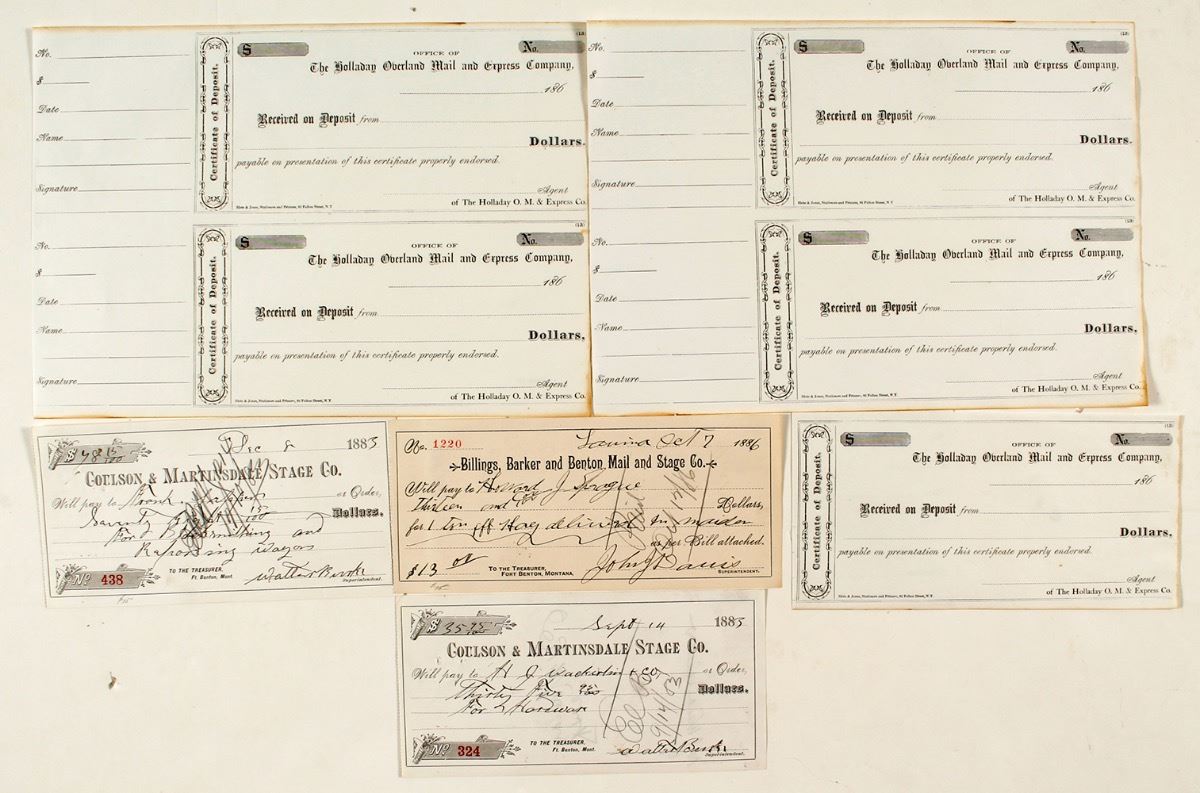 No.
$
Date
Name
Signature
Certificate of Deposit.
(13)
$ No.
OFFICE OF
The Holladay Overland Mail and Express Company,
186
Received on Deposit from
Dollars.
payable on presentation of this certificate properly endorsed.
Agent
of The Holladay O. M. & Express Co.
No.
$
Date
Name
Signature
Certificate of Deposit.
(13)
$ No.
OFFICE OF
The Holladay Overland Mail and Express Company,
186
Received on Deposit from
Dollars.
payable on presentation of this certificate properly endorsed.
Agent
of The Holladay O. M. & Express Co.
No.
$
Date
Name
Signature
Certificate of Deposit.
(13)
$ No.
OFFICE OF
The Holladay Overland Mail and Express Company,
186
Received on Deposit from
Dollars.
payable on presentation of this certificate properly endorsed.
Agent
of The Holladay O. M. & Express Co.
No.
$
Date
Name
Signature
Certificate of Deposit.
(13)
$ No.
OFFICE OF
The Holladay Overland Mail and Express Company,
186
Received on Deposit from
Dollars.
payable on presentation of this certificate properly endorsed.
Agent
of The Holladay O. M. & Express Co.
$ 78 15/100 Dec 8 1883
COULSON & MARTINSDALE STAGE CO.
Will pay to Frank or Order,
Seventy 15/100 Dollars.
For Blacksmithing and
Repairing wagons
No 438
TO THE TREASURER,
Ft. Benton, Mont.
Walter Burke
Superintendent.
No. 1220 Oct 7 1886
Billings, Barker and Benton Mail and Stage Co.
Will pay to Howard J Sprague
Thirteen and Dollars,
for 1 ton of Hay delivered in
as per Bill attached.
$13.00
TO THE TREASURER,
FORT BENTON, MONTANA.
John J Davis
SUPERINTENDENT.
Certificate of Deposit.
(13)
$ No.
OFFICE OF
The Holladay Overland Mail and Express Company,
186
Received on Deposit from
Dollars.
payable on presentation of this certificate properly endorsed.
Agent
of The Holladay O. M. & Express Co.
$ 35 95/100 Sept 14 1883
COULSON & MARTINSDALE STAGE CO.
Will pay to H J Wackerlin & Co or Order,
Thirty Five 95/100 Dollars.
For Hardware
9/14/83
No 324
TO THE TREASURER,
Ft. Benton, Mont.
Walter Burke
Superintendent.